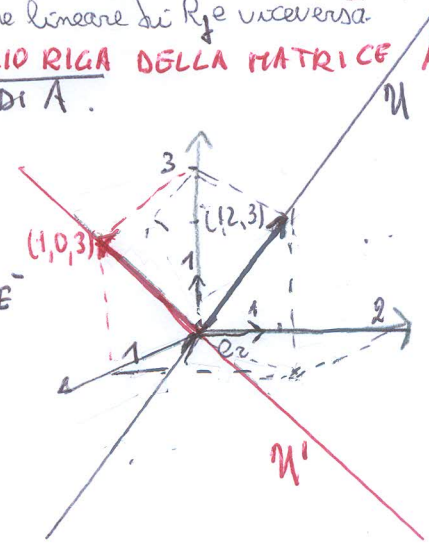 e lineare di Rj e viceversa
IO RIGA DELLA MATRICE A
DI A.
U
3
(1,2,3)
(1,0,3)
1
E
1
2
e2
1
U'